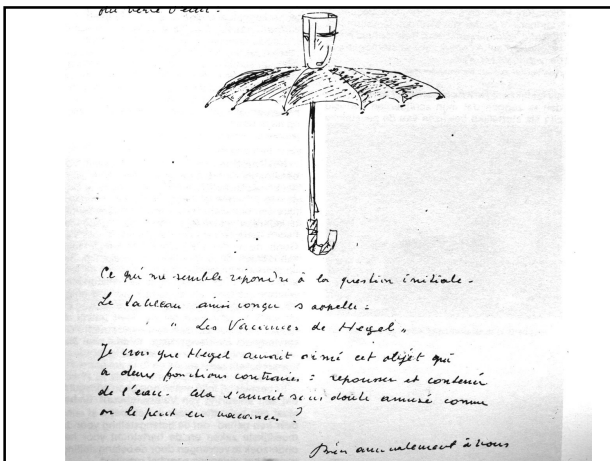 un verre d'eau.
Ce qui me semble répondre à la question initiale.
Le tableau ainsi conçu s'appelle :
" Les Vacances de Hegel "
Je crois que Hegel aurait aimé cet objet qui
a deux fonctions contraires : repousser et contenir
de l'eau. Cela l'aurait sans doute amusé comme
on le peut en vacances ?
Bien amicalement à vous